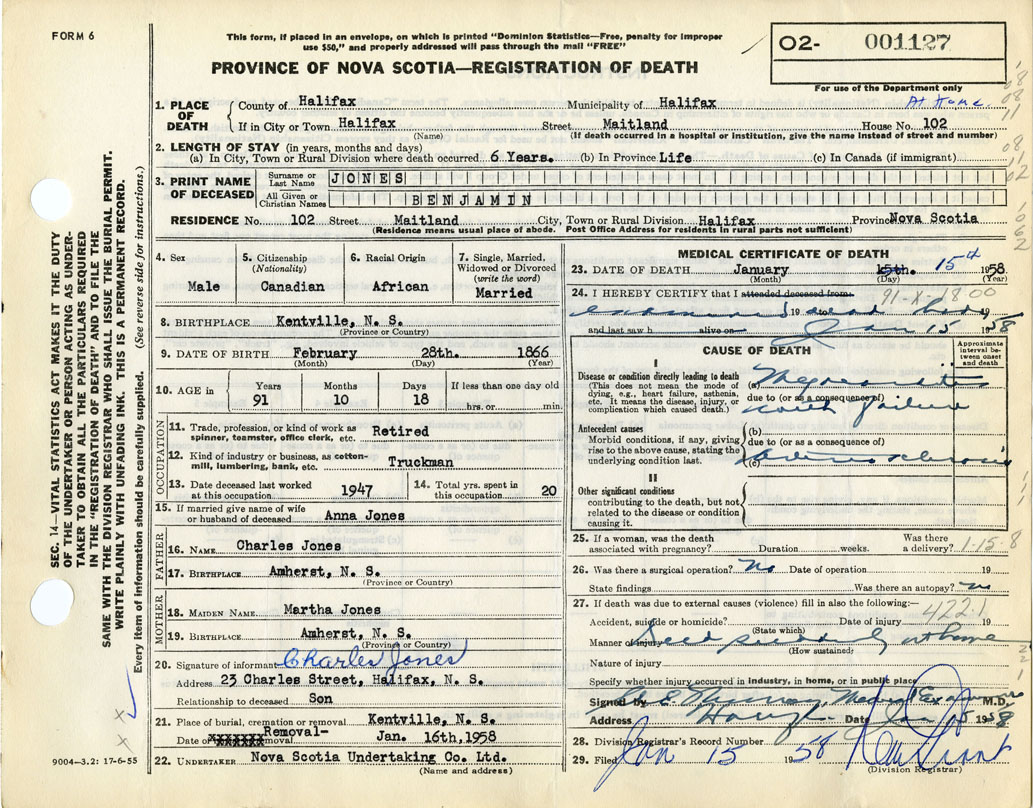 FORM 6
This form, if placed in an envelope, on which is printed "Dominion Statistics—Free, penalty for improper
use $50," and properly addressed will pass through the mail "FREE"
PROVINCE OF NOVA SCOTIA—REGISTRATION OF DEATH
O2- 001127
For use of the Department only
At Home.
1. PLACE OF DEATH
County of Halifax Municipality of Halifax
If in City or Town Halifax Street Maitland House No. 102
(Name) (If death occurred in a hospital or institution, give the name instead of street and number)
2. LENGTH OF STAY (in years, months and days)
(a) In City, Town or Rural Division where death occurred 6 Years. (b) In Province Life (c) In Canada (if immigrant)
3. PRINT NAME OF DECEASED
Surname or Last Name JONES
All Given or Christian Names BENJAMIN
RESIDENCE No. 102 Street Maitland City, Town or Rural Division Halifax Province Nova Scotia
(Residence means usual place of abode. Post Office Address for residents in rural parts not sufficient)
4. Sex
Male
5. Citizenship
(Nationality)
Canadian
6. Racial Origin
African
7. Single, Married, Widowed or Divorced
(write the word)
Married
8. BIRTHPLACE Kentville, N. S.
(Province or Country)
9. DATE OF BIRTH February 28th. 1866
(Month) (Day) (Year)
10. AGE in
Years Months Days If less than one day old
91 10 18 hrs. or min.
OCCUPATION
11. Trade, profession, or kind of work as
spinner, teamster, office clerk, etc. Retired
12. Kind of industry or business, as cotton-
mill, lumbering, bank, etc. Truckman
13. Date deceased last worked
at this occupation 1947
14. Total yrs. spent in
this occupation 20
15. If married give name of wife
or husband of deceased Anna Jones
FATHER
16. NAME Charles Jones
17. BIRTHPLACE Amherst, N. S.
(Province or Country)
MOTHER
18. MAIDEN NAME Martha Jones
19. BIRTHPLACE Amherst, N. S.
(Province or Country)
20. Signature of informant Charles Jones
Address 23 Charles Street, Halifax, N. S.
Relationship to deceased Son
21. Place of burial, cremation or removal Kentville, N. S.
Date of Removal- Jan. 16th, 1958
22. UNDERTAKER Nova Scotia Undertaking Co. Ltd.
(Name and address)
MEDICAL CERTIFICATE OF DEATH
23. DATE OF DEATH January 15th. 15th 1958
(Month) (Day) (Year)
24. I HEREBY CERTIFY that I attended deceased from 91-X-1800
examined 19 dead body 19
and last saw h alive on Jan 15 1958
CAUSE OF DEATH
Approximate interval between onset and death
I
Disease or condition directly leading to death
(This does not mean the mode of
dying, e.g., heart failure, asthenia,
etc. It means the disease, injury, or
complication which caused death.)
(a)
due to (or as a consequence of)
failure
Antecedent causes
Morbid conditions, if any, giving
rise to the above cause, stating the
underlying condition last.
(b)
due to (or as a consequence of)
(c)
II
Other significant conditions
contributing to the death, but not
related to the disease or condition
causing it.
25. If a woman, was the death
associated with pregnancy? Duration weeks. Was there
a delivery? 1-15-8
26. Was there a surgical operation? No Date of operation 19
State findings Was there an autopsy? no
27. If death was due to external causes (violence) fill in also the following:—
4221
Accident, suicide or homicide? Date of injury 19
(State which)
Manner of injury Died suddenly at home
(How sustained)
Nature of injury
Specify whether injury occurred in industry, in home, or in public place
Signed by Medical Examiner M.D.
Address Date Jan 15 1958
28. Division Registrar's Record Number
29. Filed Jan 15 1958
(Division Registrar)
SEC. 14—VITAL STATISTICS ACT MAKES IT THE DUTY
OF THE UNDERTAKER OR PERSON ACTING AS UNDER-
TAKER TO OBTAIN ALL THE PARTICULARS REQUIRED
IN THE "REGISTRATION OF DEATH" AND TO FILE THE
SAME WITH THE DIVISION REGISTRAR WHO SHALL ISSUE THE BURIAL PERMIT.
WRITE PLAINLY WITH UNFADING INK. THIS IS A PERMANENT RECORD.
Every item of information should be carefully supplied. (See reverse side for instructions.)
9004—3.2: 17-6-55